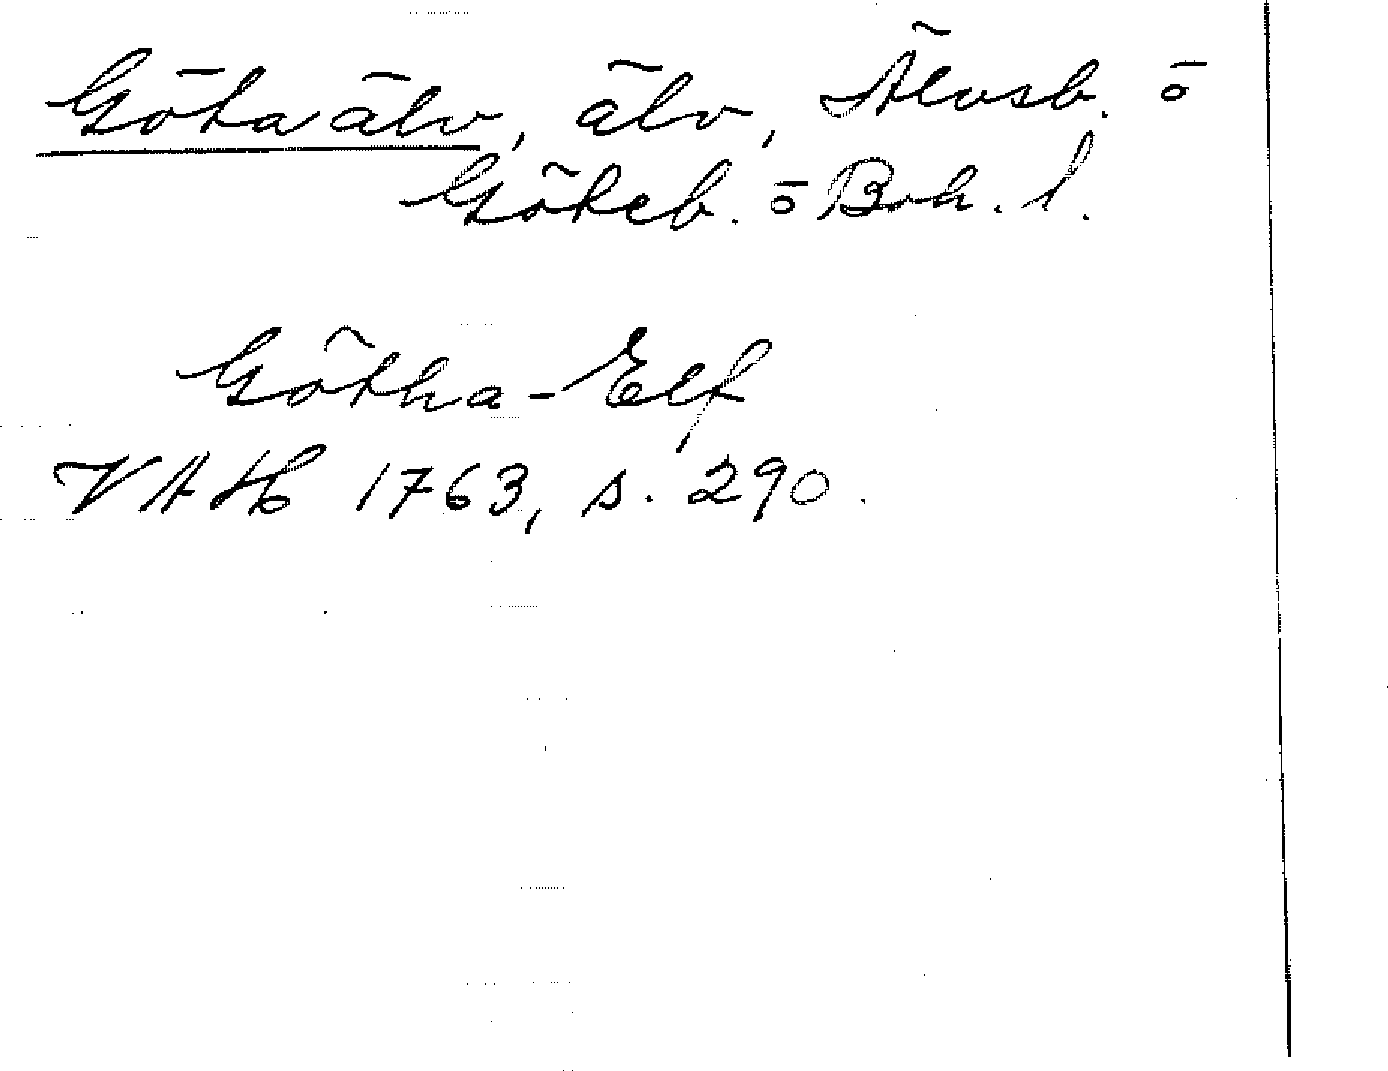 Göta älv, älv, Älvsb. ō
Göteb. ō Boh. l.
Götha-Elf
VAH 1763, s. 290.